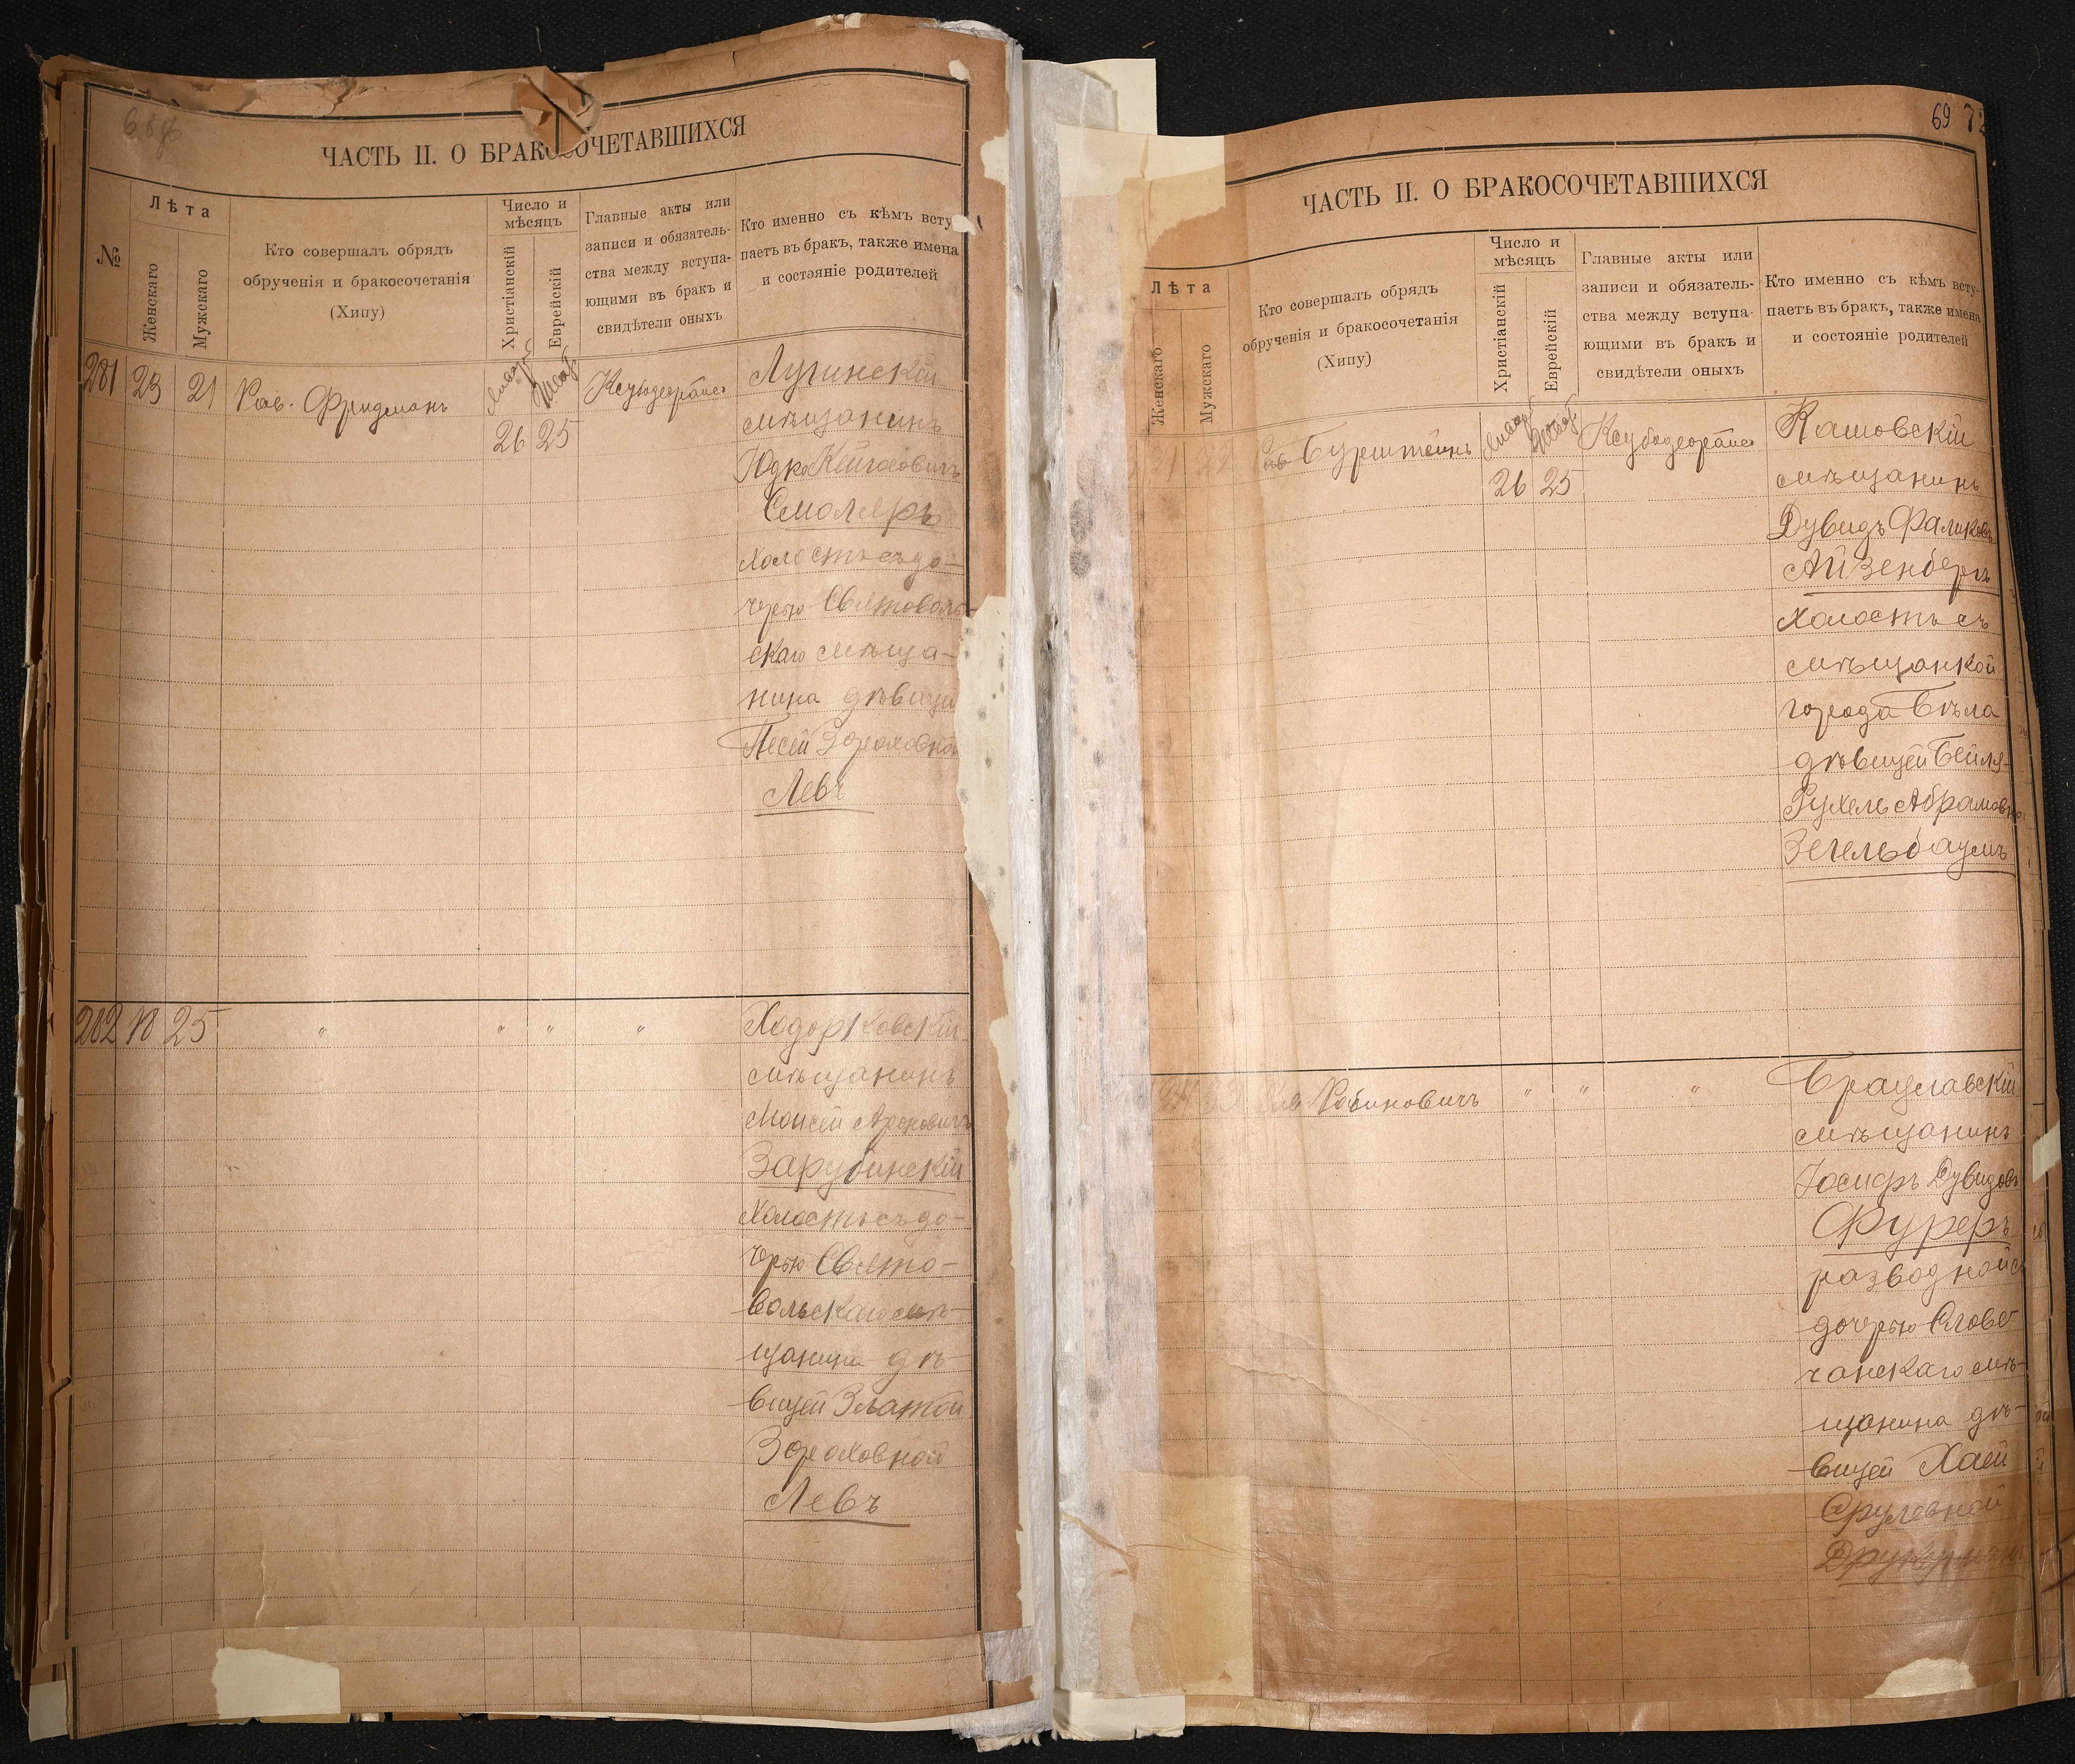 ЧАСТЬ II. О БРАКОСОЧЕТАВШИХСЯ
№
Лѣта
Женскаго
Мужскаго
Кто совершалъ обрядъ
обрученія и бракосочетанія
(Хипу)
Число и
мѣсяцъ
Христіанскій
Еврейскій
Главные акты или
записи и обязатель-
ства между вступа-
ющими въ бракъ и
свидѣтели оныхъ
Кто именно съ кѣмъ всту
паетъ въ бракъ, также имена
и состояніе родителей
281 23 21 Рав. Фридманъ
26 25
Лугинскій
мѣщанинъ
Юдко
Смоляръ
холостъ съ до-
черью Святоволь-
скаго мѣща-
нина дѣвицей
Песей Зораховной
Левъ
282 18 25 " " " "
Ходорковскій
мѣщанинъ
Моисей Ароновичъ
Зарубинскій
холостъ съ до-
черью Свято-
вольскаго мѣ-
щанина дѣ-
вицей Златой
Зораховной
Левъ
69 72
ЧАСТЬ II. О БРАКОСОЧЕТАВШИХСЯ
Лѣта
Женскаго
Мужскаго
Кто совершалъ обрядъ
обрученія и бракосочетанія
(Хипу)
Число и
мѣсяцъ
Христіанскій
Еврейскій
Главные акты или
записи и обязатель-
ства между вступа-
ющими въ бракъ и
свидѣтели оныхъ
Кто именно съ кѣмъ всту-
паетъ въ бракъ, также имена
и состояніе родителей
21 22 Рав Бурштейнъ
26 25
Кашовскій
мѣщанинъ
Дувидъ Фаликовъ
Айзенбергъ
холостъ съ
мѣщанкой
города Бѣла
дѣвицей Бейля-
Рухель Абрамовна
Зегельбаумъ
Рав Рабиновичъ " " "
Брацлавскій
мѣщанинъ
Іосифъ Дувидовъ
Фуреръ
разводной съ
дочерью Слове
чанскаго мѣ-
щанина дѣ-
вицей Хаей
Срулевной
Друкерманъ